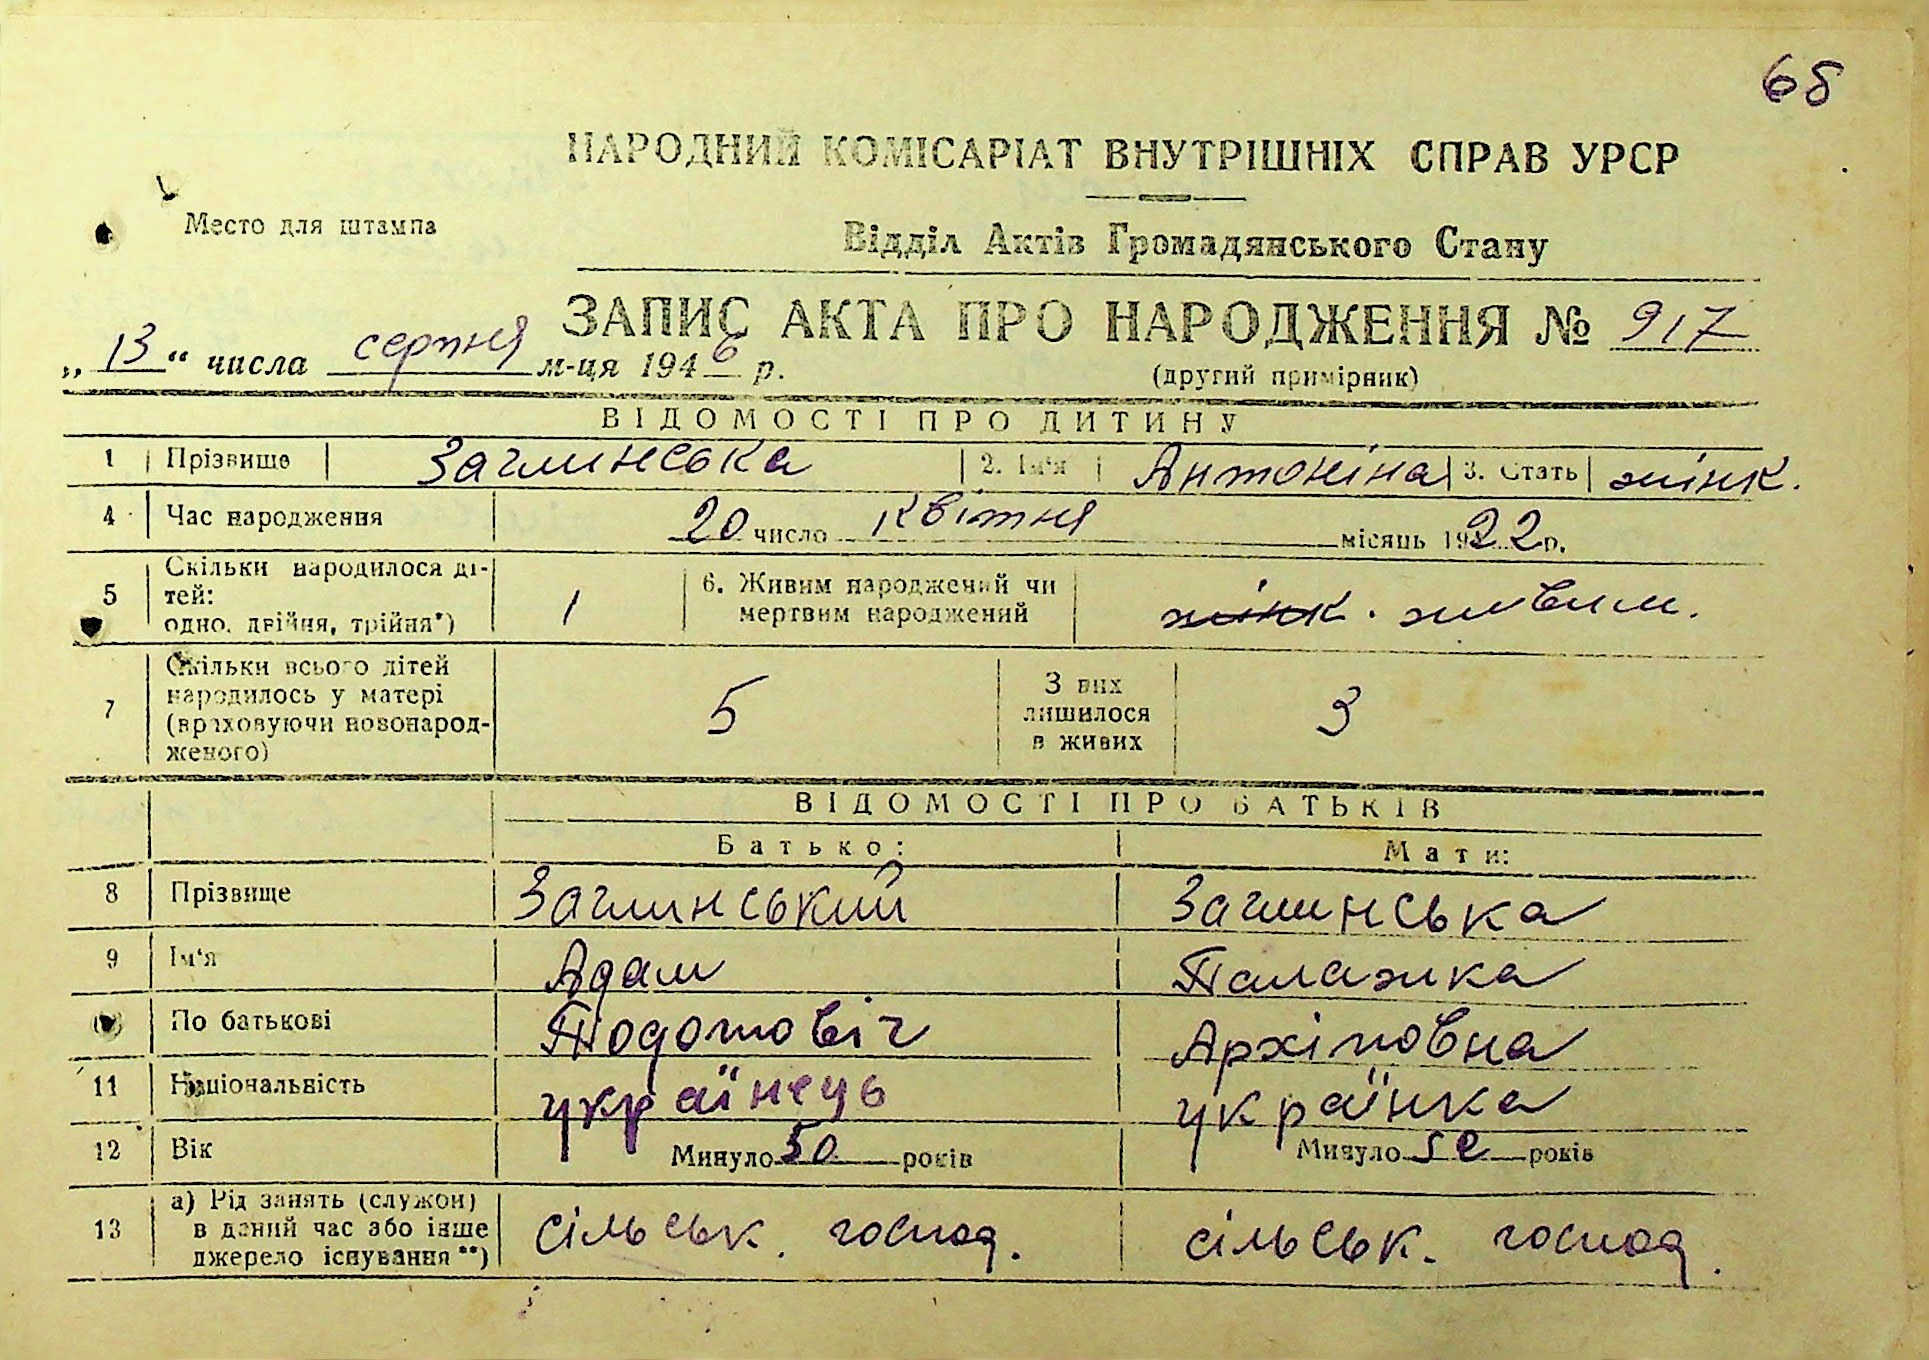 68
НАРОДНИЙ КОМІСАРІАТ ВНУТРІШНІХ СПРАВ УРСР
Место для штампа
Відділ Актів Громадянського Стану
ЗАПИС АКТА ПРО НАРОДЖЕННЯ № 917
„13“ числа серпня м-ця 1946 р.
(другий примірник)
ВІДОМОСТІ ПРО ДИТИНУ
1 Прізвище Заглинська 2. Ім'я Антоніна 3. Стать жінк.
4 Час народження 20 число квітня місяць 1922 р.
5 Скільки народилося ді-
тей:
одно, двійня, трійня*) 1
6. Живим народжений чи
мертвим народжений жінк. живим.
7 Скільки всього дітей
народилось у матері
(враховуючи новонарод-
женого) 5
З них
лишилося
в живих 3
ВІДОМОСТІ ПРО БАТЬКІВ
Батько: Мати:
8 Прізвище Заглинський Заглинська
9 Ім'я Адам Палажка
По батькові Архіповна
11 Національність українець українка
12 Вік Минуло 50 років Минуло років
13 а) Рід занять (служби)
в даний час або інше
джерело існування**) сільськ. господ. сільськ. господ.